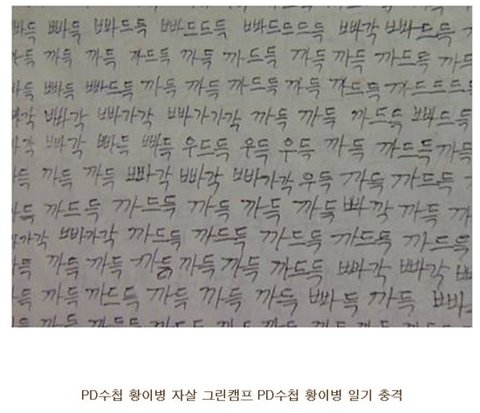 빠득 빠득 빠드득 빠드득 빠드드드득 빠각 빠드득
까득 까득 까득 까드득 까득 까드득 까득 까득 까드득
빠득 빠드득 까득 까득 까드득 까득 까득 까드드드득
빠각 빠가각 빠가가각 까득 까득 까드득 빠드득
빠각 빠득 빠득 우드득 우득 우득 까득 까드득 까득
까득 까득 빠각 빠각 빠가각 우득 까득 까드득
까드득 까드득 까득 까득 까득 빠각 까득
빠카각 까드득 까드득 까드득 까드득 까드득
까득 까득 까득 까득 까득 까드득 빠각 빠각
까득 까드득 까득 까득 까득 빠득 까득
PD수첩 황이병 자살 그린캠프 PD수첩 황이병 일기 충격